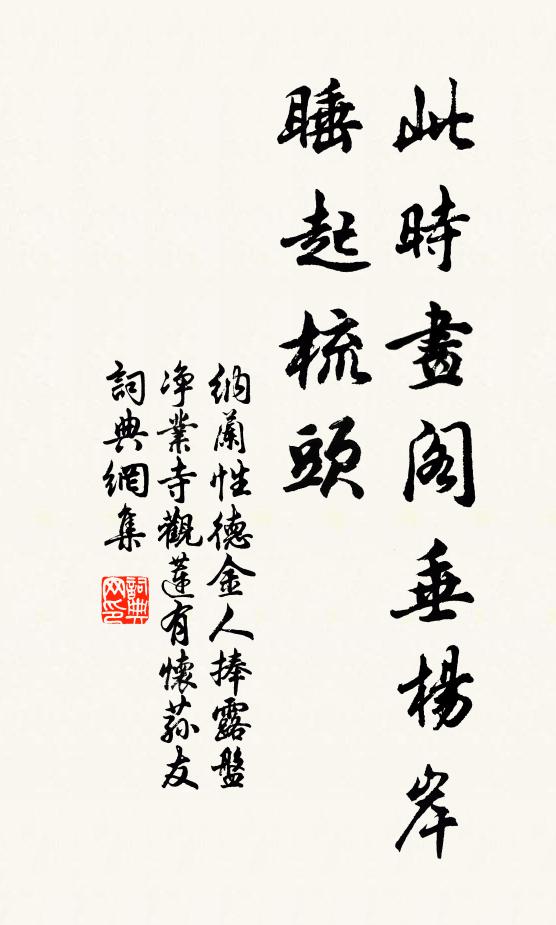 此時畫閣垂楊岸
睡起梳頭
納蘭性德金人捧露盤
净業寺觀蓮有懷蓀友
詞典網集
詞典网印